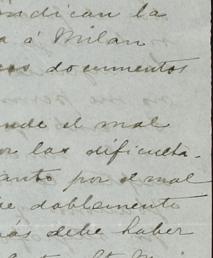 indican la
a á Milán
documentos
nde el mal
or las dificulta-
anto por el mal
doblamente
ás debe haber